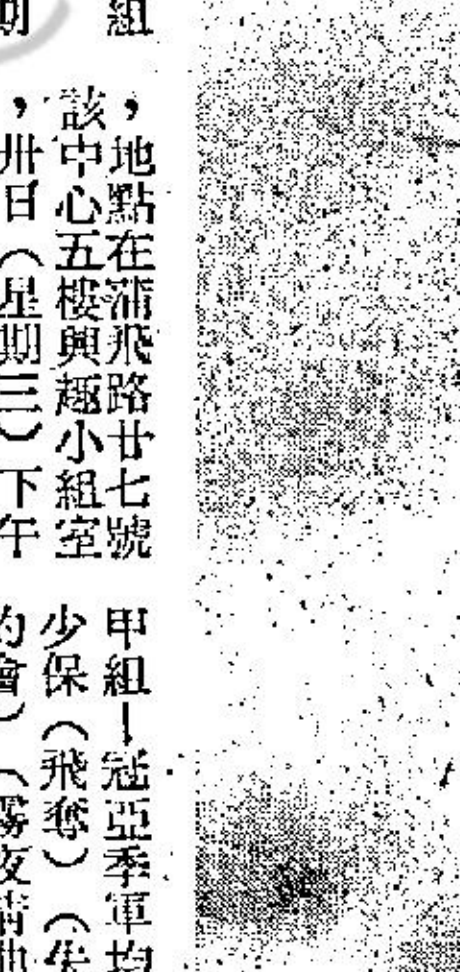 組
期
，地點在蒲飛路廿七號
該中心五樓興趣小組室
，卅日（星期三）下午
甲組—冠亞季軍均
少保（飛奪）（
約會）（霧夜情